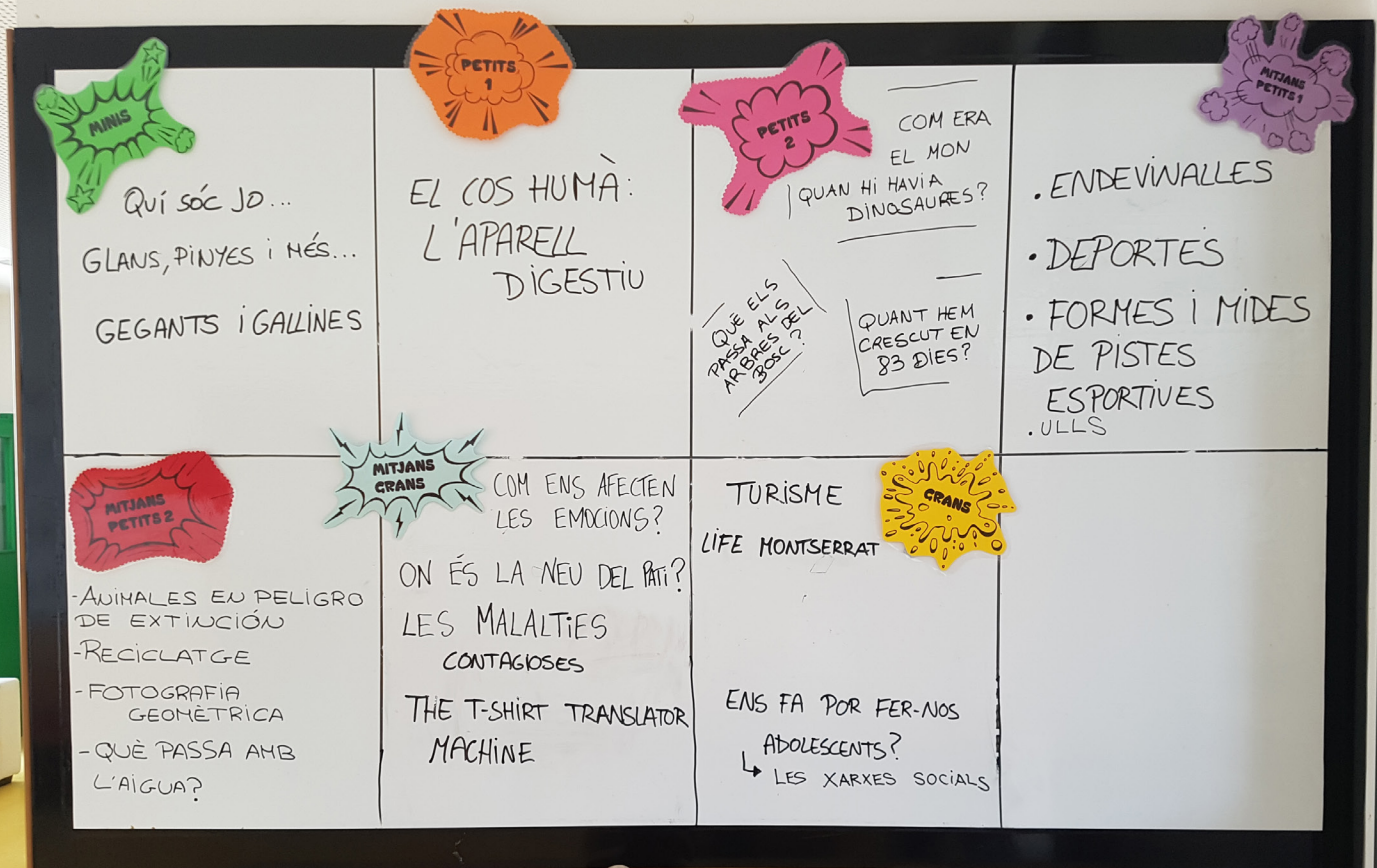 MINIS
QUÍ SÓC JO...
GLANS, PINYES I MÉS...
GEGANTS I GALLINES
PETITS
1
EL COS HUMÀ:
L'APARELL
DIGESTIU
PETITS
2
COM ERA
EL MON
QUAN HI HAVIA
DINOSAURES?
QUÈ ELS
PASSA ALS
ARBRES DEL
BOSC?
QUANT HEM
CRESCUT EN
83 DIES?
MITJANS
PETITS 1
. ENDEVINALLES
. DEPORTES
. FORMES I MIDES
DE PISTES
ESPORTIVES
. ULLS
MITJANS
PETITS 2
- ANIMALES EN PELIGRO
DE EXTINCIÓN
- RECICLATGE
- FOTOGRAFIA
GEOMÈTRICA
- QUÈ PASSA AMB
L'AIGUA?
MITJANS
GRANS
COM ENS AFECTEN
LES EMOCIONS?
ON ÉS LA NEU DEL PATI?
LES MALALTIES
CONTAGIOSES
THE T-SHIRT TRANSLATOR
MACHINE
GRANS
TURISME
LIFE MONTSERRAT
ENS FA POR FER-NOS
ADOLESCENTS?
↳ LES XARXES SOCIALS